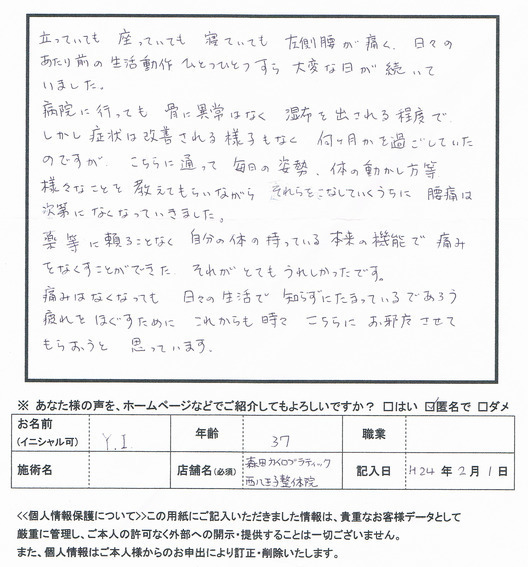 立っていても 座っていても 寝ていても 左側腰が痛く、日々の
あたり前の生活動作 ひとつひとつすら 大変な日が 続いて
いました。
病院に行っても 骨に異常はなく 湿布を出される程度で
しかし症状は改善される様子もなく 何ヶ月かを過ごしていた
のですが、こちらに通って 毎日の姿勢、体の動かし方等
様々なことを 教えてもらいながら それらをこなしていくうちに 腰痛は
次第になくなっていきました。
薬等に頼ることなく 自分の体の持っている 本来の機能で 痛み
をなくすことができた それがとてもうれしかったです。
痛みはなくなっても 日々の生活で 知らずにたまっているであろう
疲れを ほぐすために これからも時々 こちらに お邪魔させて
もらおうと 思っています。
※ あなた様の声を、ホームページなどでご紹介してもよろしいですか？ □はい ☑匿名で □ダメ
お名前 (イニシャル可) Y.I. 年齢 37 職業
施術名 店舗名(必須) 森田カイロプラティック 西八王子整体院 記入日 H24 年 2月 1日
<<個人情報保護について>>この用紙にご記入いただきました情報は、貴重なお客様データとして
厳重に管理し、ご本人の許可なく外部への開示・提供することは一切ございません。
また、個人情報はご本人様からのお申出により訂正・削除いたします。